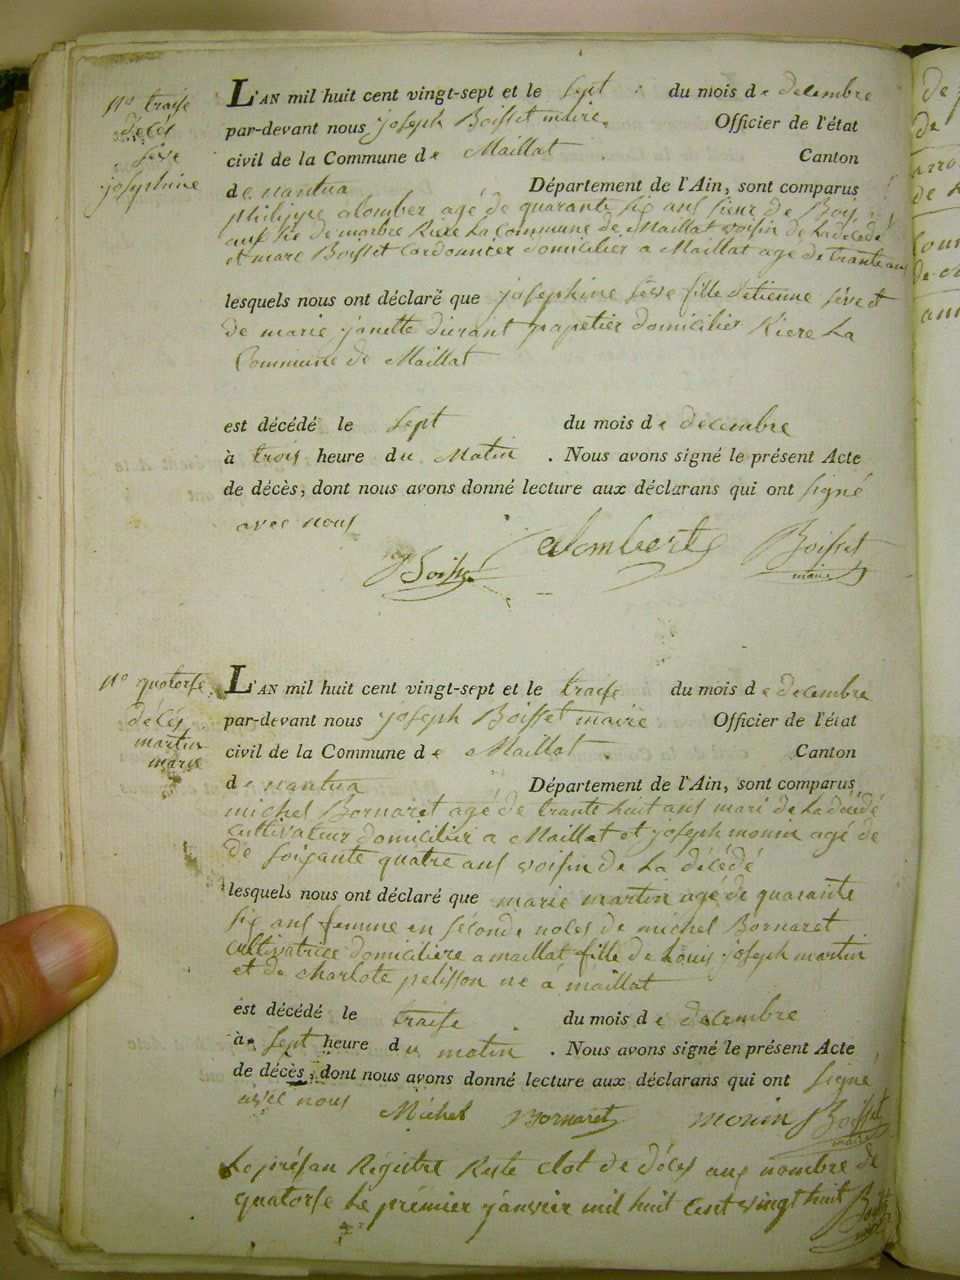 N° traise
décés
séve
josephine
L'AN mil huit cent vingt-sept et le sept du mois de decembre
par-devant nous joseph Boisset maire Officier de l'état
civil de la Commune de Maillat Canton
de nantua Département de l'Ain, sont comparus
philippe alomber agé de quarante six ans sieur de Bois
de marbre La commune de Maillat voisin de La décédé
et marc Boisset Cordonnier domicilier a Maillat agé de trante ans
lesquels nous ont déclaré que josephine séve fille d'etienne séve et
de marie janette durant papetier domicilier Riere La
Commune de Maillat
est décédé le sept du mois de decembre
à trois heure du Matin . Nous avons signé le présent Acte
de décès, dont nous avons donné lecture aux déclarans qui ont signé
avec nous
Boisset alombert Boisset
maire
N° quatorse
décés
martin
marie
L'AN mil huit cent vingt-sept et le traise du mois de decembre
par-devant nous joseph Boisset maire Officier de l'état
civil de la Commune de Maillat Canton
de nantua Département de l'Ain, sont comparus
michel Bornaret agé de trante huit ans mari de La décédé
cultivateur domicilier a Maillat et joseph monin agé de
de soixante quatre ans voisin de La décédé
lesquels nous ont déclaré que marie martin agé de quarante
six ans femme en séconde noles de michel Bornaret
cultivatrice domicilière a maillat fille de Louis joseph martin
et de charlote pelisson né à maillat
est décédé le traise du mois de decembre
à sept heure du matin . Nous avons signé le présent Acte
de décès, dont nous avons donné lecture aux déclarans qui ont signé
avec nous Michel Bornaret monin Boisset
maire
Le présan Régistre Reste clot de décés aux nombre de
quatorse Le prémier janvier mil huit Cent vingt huit Boisset